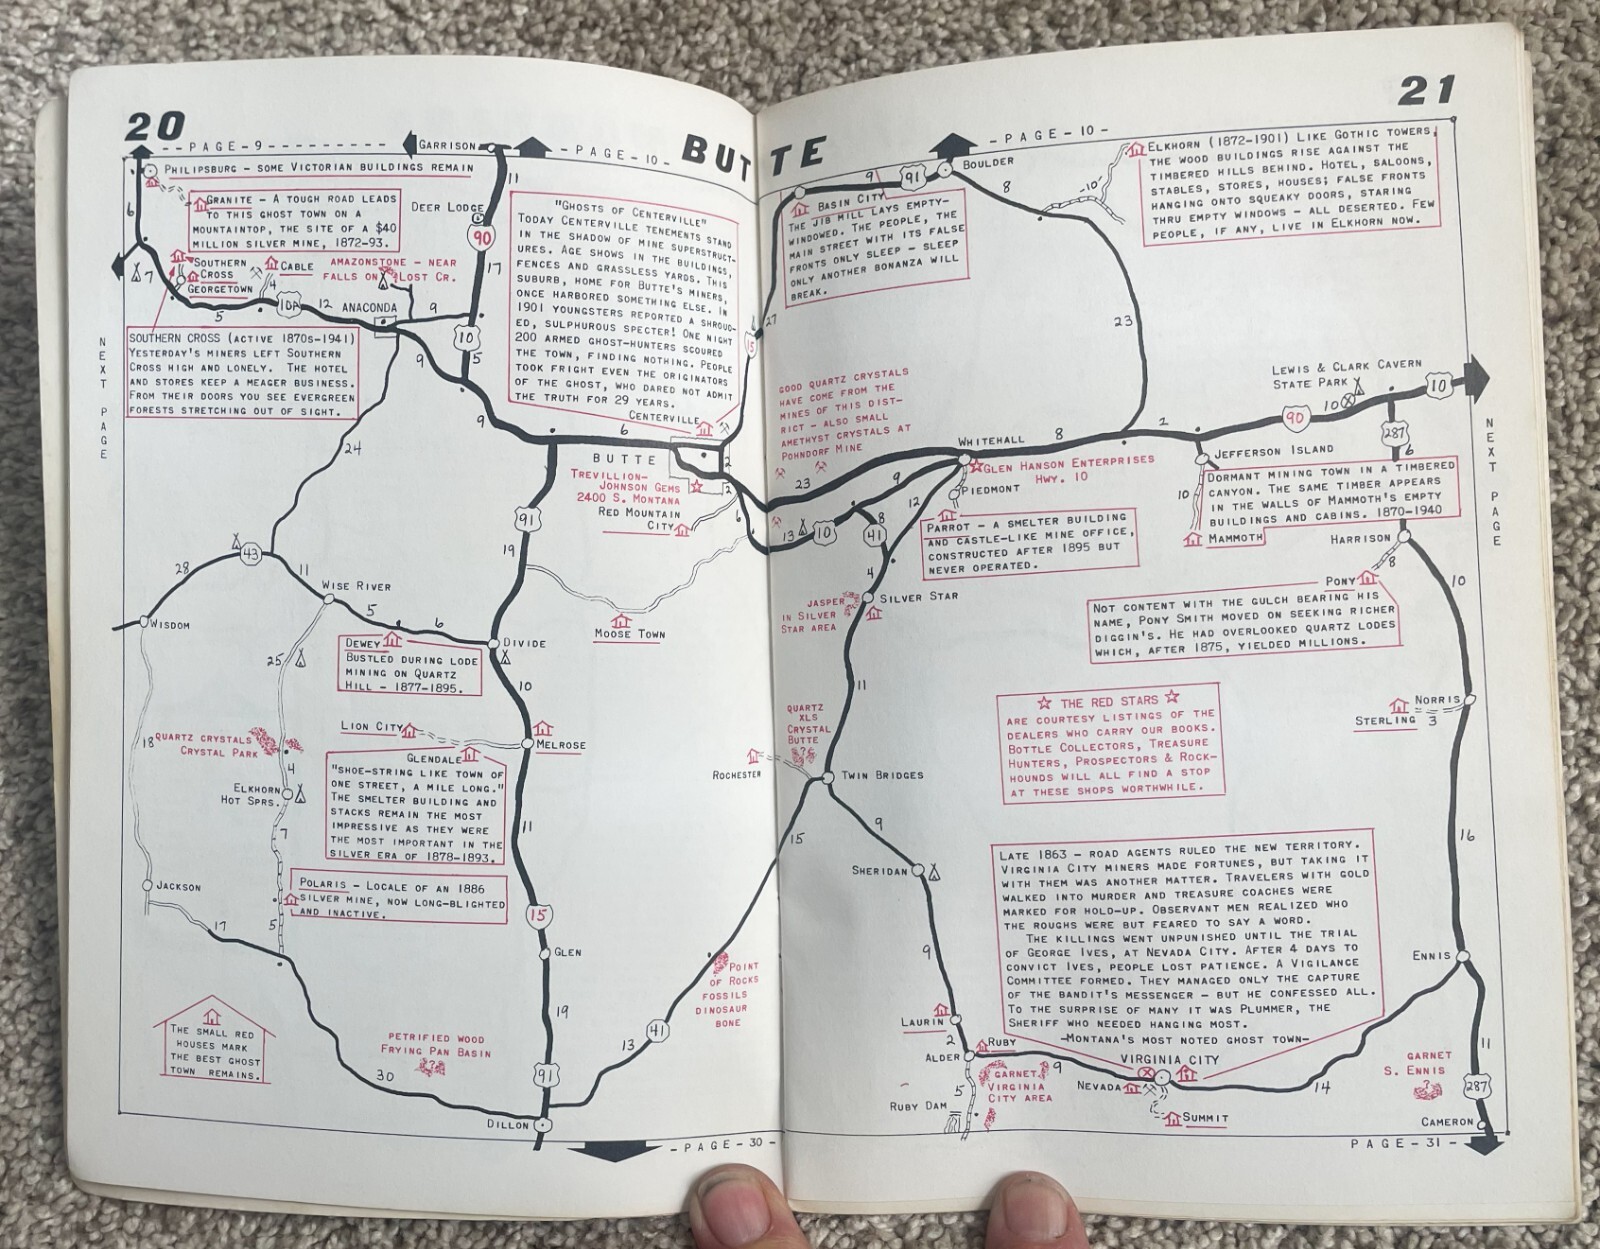 20
21
BUTTE
- - PAGE - 9 - - - - - - - - - -
GARRISON
- PAGE - 10 -
- PAGE - 10 -
PHILIPSBURG - SOME VICTORIAN BUILDINGS REMAIN
GRANITE - A TOUGH ROAD LEADS
TO THIS GHOST TOWN ON A
MOUNTAINTOP, THE SITE OF A $40
MILLION SILVER MINE, 1872-93.
6
7
SOUTHERN
CROSS
GEORGETOWN
CABLE
4
AMAZONSTONE - NEAR
FALLS ON LOST CR.
10A
5
12
ANACONDA
9
DEER LODGE
11
90
17
10
5
9
9
6
SOUTHERN CROSS (ACTIVE 1870S-1941)
YESTERDAY'S MINERS LEFT SOUTHERN
CROSS HIGH AND LONELY. THE HOTEL
AND STORES KEEP A MEAGER BUSINESS.
FROM THEIR DOORS YOU SEE EVERGREEN
FORESTS STRETCHING OUT OF SIGHT.
NEXT PAGE
"GHOSTS OF CENTERVILLE"
TODAY CENTERVILLE TENEMENTS STAND
IN THE SHADOW OF MINE SUPERSTRUCT-
URES. AGE SHOWS IN THE BUILDINGS,
FENCES AND GRASSLESS YARDS. THIS
SUBURB, HOME FOR BUTTE'S MINERS,
ONCE HARBORED SOMETHING ELSE. IN
1901 YOUNGSTERS REPORTED A SHROUD-
ED, SULPHUROUS SPECTER! ONE NIGHT
200 ARMED GHOST-HUNTERS SCOURED
THE TOWN, FINDING NOTHING. PEOPLE
TOOK FRIGHT EVEN THE ORIGINATORS
OF THE GHOST, WHO DARED NOT ADMIT
THE TRUTH FOR 29 YEARS.
CENTERVILLE
BUTTE
TREVILLION-
JOHNSON GEMS
2400 S. MONTANA
RED MOUNTAIN
CITY
2
2
6
24
91
19
43
28
11
WISE RIVER
5
6
WISDOM
DEWEY
BUSTLED DURING LODE
MINING ON QUARTZ
HILL - 1877-1895.
DIVIDE
MOOSE TOWN
25
10
LION CITY
MELROSE
GLENDALE
"SHOE-STRING LIKE TOWN OF
ONE STREET, A MILE LONG."
THE SMELTER BUILDING AND
STACKS REMAIN THE MOST
IMPRESSIVE AS THEY WERE
THE MOST IMPORTANT IN THE
SILVER ERA OF 1878-1893.
18
QUARTZ CRYSTALS
CRYSTAL PARK
4
ELKHORN
HOT SPRS.
7
11
JACKSON
POLARIS - LOCALE OF AN 1886
SILVER MINE, NOW LONG-BLIGHTED
AND INACTIVE.
17
5
15
GLEN
19
THE SMALL RED
HOUSES MARK
THE BEST GHOST
TOWN REMAINS.
PETRIFIED WOOD
FRYING PAN BASIN
?
30
91
DILLON
13
41
- PAGE - 30 -
BOULDER
9
91
BASIN CITY
THE JIB MILL LAYS EMPTY-
WINDOWED. THE PEOPLE, THE
MAIN STREET WITH ITS FALSE
FRONTS ONLY SLEEP - SLEEP
ONLY ANOTHER BONANZA WILL
BREAK.
27
15
8
-10-
ELKHORN (1872-1901) LIKE GOTHIC TOWERS,
THE WOOD BUILDINGS RISE AGAINST THE
TIMBERED HILLS BEHIND. HOTEL, SALOONS,
STABLES, STORES, HOUSES; FALSE FRONTS
HANGING ONTO SQUEAKY DOORS, STARING
THRU EMPTY WINDOWS - ALL DESERTED. FEW
PEOPLE, IF ANY, LIVE IN ELKHORN NOW.
23
GOOD QUARTZ CRYSTALS
HAVE COME FROM THE
MINES OF THIS DIST-
RICT - ALSO SMALL
AMETHYST CRYSTALS AT
POHNDORF MINE
LEWIS & CLARK CAVERN
STATE PARK
10
10
90
287
6
WHITEHALL
8
2
GLEN HANSON ENTERPRISES
HWY. 10
PIEDMONT
23
9
12
13
10
8
41
4
PARROT - A SMELTER BUILDING
AND CASTLE-LIKE MINE OFFICE,
CONSTRUCTED AFTER 1895 BUT
NEVER OPERATED.
JEFFERSON ISLAND
DORMANT MINING TOWN IN A TIMBERED
CANYON. THE SAME TIMBER APPEARS
IN THE WALLS OF MAMMOTH'S EMPTY
BUILDINGS AND CABINS. 1870-1940
10
MAMMOTH
NEXT PAGE
HARRISON
8
PONY
NOT CONTENT WITH THE GULCH BEARING HIS
NAME, PONY SMITH MOVED ON SEEKING RICHER
DIGGIN'S. HE HAD OVERLOOKED QUARTZ LODES
WHICH, AFTER 1875, YIELDED MILLIONS.
10
SILVER STAR
JASPER
IN SILVER
STAR AREA
11
QUARTZ
XLS
CRYSTAL
BUTTE
?
ROCHESTER
TWIN BRIDGES
THE RED STARS
ARE COURTESY LISTINGS OF THE
DEALERS WHO CARRY OUR BOOKS.
BOTTLE COLLECTORS, TREASURE
HUNTERS, PROSPECTORS & ROCK-
HOUNDS WILL ALL FIND A STOP
AT THESE SHOPS WORTHWHILE.
NORRIS
STERLING 3
16
15
9
SHERIDAN
LATE 1863 - ROAD AGENTS RULED THE NEW TERRITORY.
VIRGINIA CITY MINERS MADE FORTUNES, BUT TAKING IT
WITH THEM WAS ANOTHER MATTER. TRAVELERS WITH GOLD
WALKED INTO MURDER AND TREASURE COACHES WERE
MARKED FOR HOLD-UP. OBSERVANT MEN REALIZED WHO
THE ROUGHS WERE BUT FEARED TO SAY A WORD.
THE KILLINGS WENT UNPUNISHED UNTIL THE TRIAL
OF GEORGE IVES, AT NEVADA CITY. AFTER 4 DAYS TO
CONVICT IVES, PEOPLE LOST PATIENCE. A VIGILANCE
COMMITTEE FORMED. THEY MANAGED ONLY THE CAPTURE
OF THE BANDIT'S MESSENGER - BUT HE CONFESSED ALL.
TO THE SURPRISE OF MANY IT WAS PLUMMER, THE
SHERIFF WHO NEEDED HANGING MOST.
-MONTANA'S MOST NOTED GHOST TOWN-
POINT
OF ROCKS
FOSSILS
DINOSAUR
BONE
9
LAURIN
2
ALDER
RUBY
9
5
GARNET
VIRGINIA
CITY AREA
RUBY DAM
VIRGINIA CITY
NEVADA
SUMMIT
14
ENNIS
GARNET
S. ENNIS
?
11
287
CAMERON
PAGE - 31 -